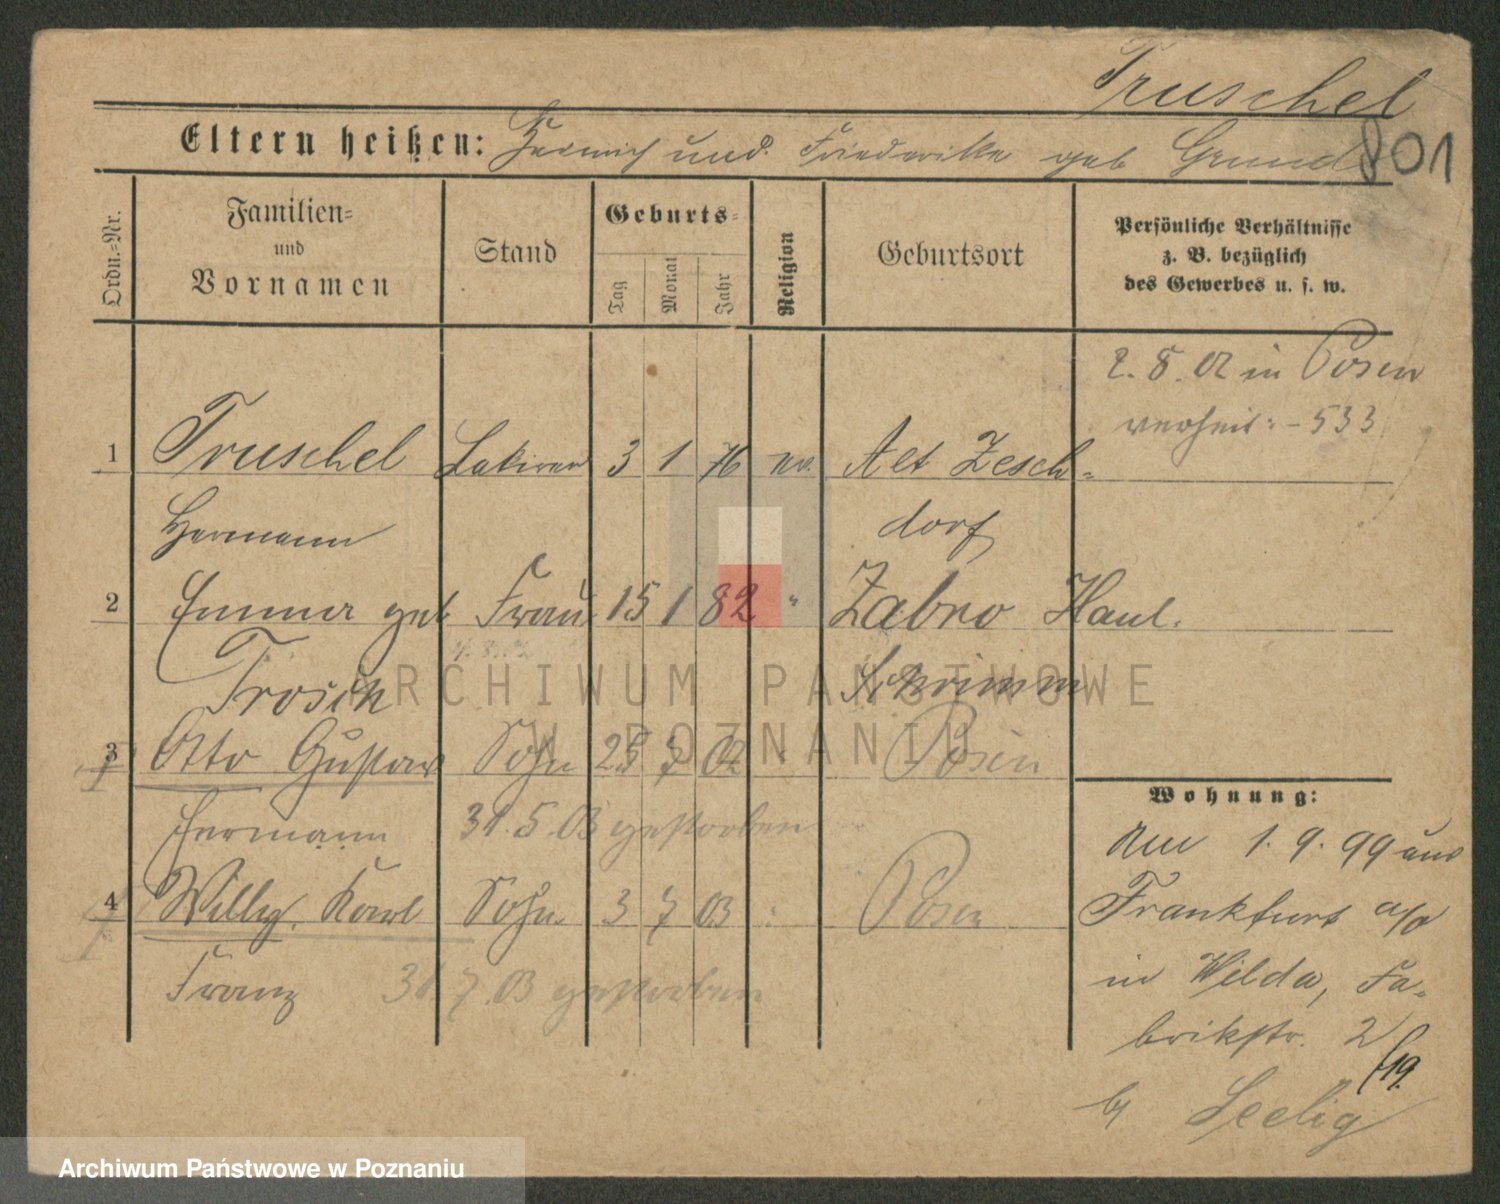 Truschel
801
Eltern heißen: Heinrich und Friederike geb Grund
Ordn.=Nr.
Familien=
und
Vornamen
Stand
Geburts=
Tag
Monat
Jahr
Religion
Geburtsort
Persönliche Verhältnisse
z. B. bezüglich
des Gewerbes u. s. w.
2. 8. 02 in Posen
verheir: - 533
1 Truschel Lakirer 3 1 76 ev. Alt Zesch-
Hermann dorf
2 Emma geb Frau 15 1 82 " Zabno Haul.
Trosch Schrimm
3 Otto Gustav Sohn 25 7 02 " Posen
Hermann 31. 5. 03 gestorben
4 Willy Karl Sohn 3 7 03 : Posen
Franz 31. 7. 03 gestorben
Wohnung:
Am 1. 9. 99 aus
Frankfurt a/O
in Wilda, Fa-
brikstr. 2
19.
b/ Seelig
ARCHIWUM PAŃSTWOWE
W POZNANIU
Archiwum Państwowe w Poznaniu